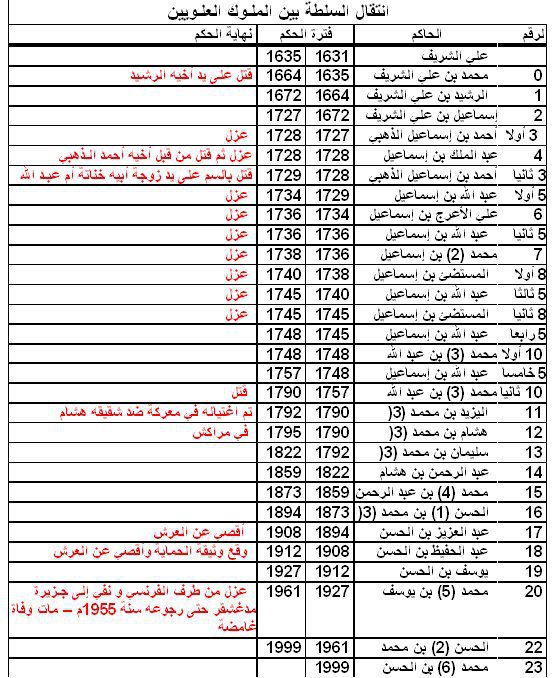 انتقال السلطة بين الملوك العلويين
لرقم الحاكم فترة الحكم نهاية الحكم
علي الشريف 1631 1635
0 محمد بن علي الشريف 1635 1664 قتل على يد أخيه الرشيد
1 الرشيد بن علي الشريف 1664 1672
2 إسماعيل بن علي الشريف 1672 1727
3 أولا أحمد بن إسماعيل الذهبي 1727 1728 عزل
4 عبد الملك بن إسماعيل 1728 1728 عزل ثم قتل من قبل أخيه أحمد الذهبي
3 ثانيا أحمد بن إسماعيل الذهبي 1728 1729 قتل بالسم على يد زوجة أبيه خناتة أم عبد الله
5 أولا عبد الله بن إسماعيل 1729 1734 عزل
6 علي الأعرج بن إسماعيل 1734 1736 عزل
5 ثانيا عبد الله بن إسماعيل 1736 1736 عزل
7 محمد (2) بن إسماعيل 1736 1738 عزل
8 أولا المستضئ بن إسماعيل 1738 1740 عزل
5 ثالثا عبد الله بن إسماعيل 1740 1745 عزل
8 ثانيا المستضئ بن إسماعيل 1745 1745 عزل
5 رابعا عبد الله بن إسماعيل 1745 1748
10 أولا محمد (3) بن عبد الله 1748 1748
5 خامسا عبد الله بن إسماعيل 1748 1757
10 ثانيا محمد (3) بن عبد الله 1757 1790 قتل
11 اليزيد بن محمد (3( 1790 1792 تم اغتياله في معركة ضد شقيقه هشام
12 هشام بن محمد (3( 1790 1795 في مراكش
13 سليمان بن محمد (3( 1792 1822
14 عبد الرحمن بن هشام 1822 1859
15 محمد (4) بن عبد الرحمن 1859 1873
16 الحسن (1) بن محمد (3( 1873 1894
17 عبد العزيز بن الحسن 1894 1908 أقصي عن العرش
18 عبد الحفيظ بن الحسن 1908 1912 وقع وثيقة الحماية وأقصي عن العرش
19 يوسف بن الحسن 1912 1927
20 محمد (5) بن يوسف 1927 1961 عزل من طرف الفرنسي و نفي إلى جزيرة
مدغشقر حتى رجوعه سنة 1955م – مات وفاة
غامضة
22 الحسن (2) بن محمد 1961 1999
23 محمد (6) بن الحسن 1999